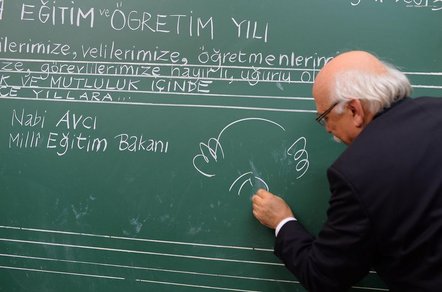 EĞİTİM ve ÖĞRETİM YILI
velilerimize, öğretmenlerim
görevlilerimize hayırlı, uğurlu ol
VE MUTLULUK İÇİNDE
YILLARA...
Nabi Avcı
Millî Eğitim Bakanı